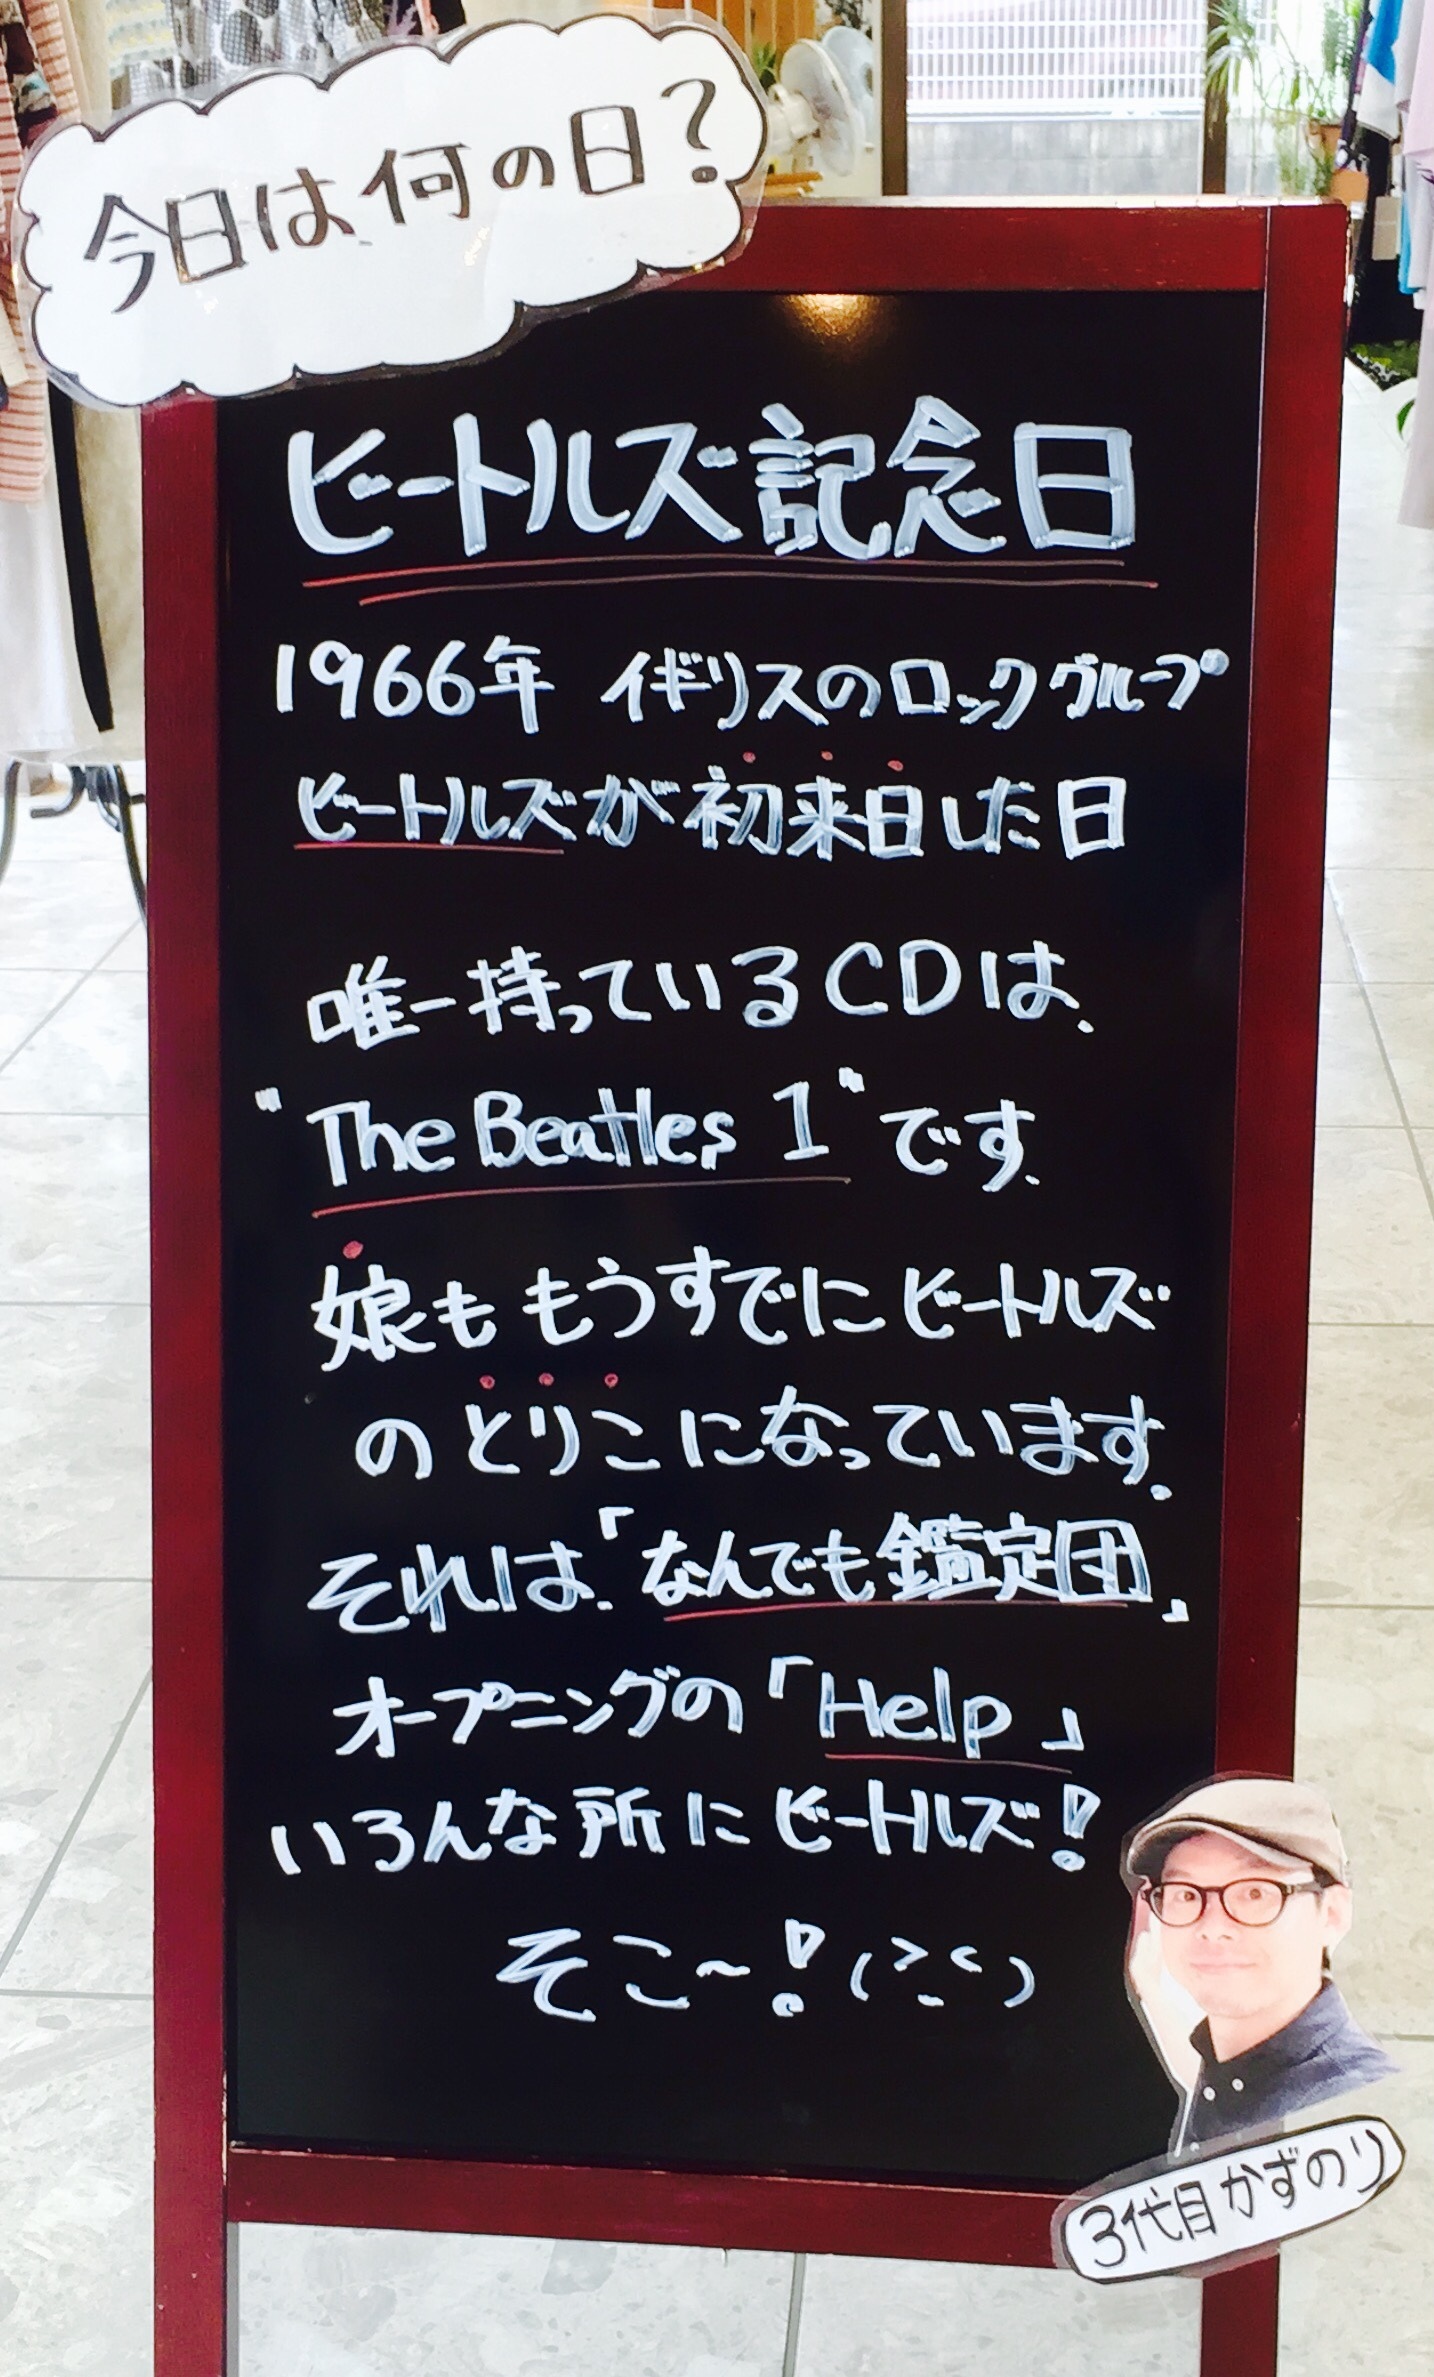 今日は何の日?
ビートルズ記念日
1966年 イギリスのロックグループ
ビートルズが初来日した日
唯一持っているCDは、
"The Beatles 1"です。
娘ももうすでにビートルズ
のとりこになっています。
それは、「なんでも鑑定団」
オープニングの「Help」
いろんな所にビートルズ!
そこ〜!(>_<)
3代目かずのり